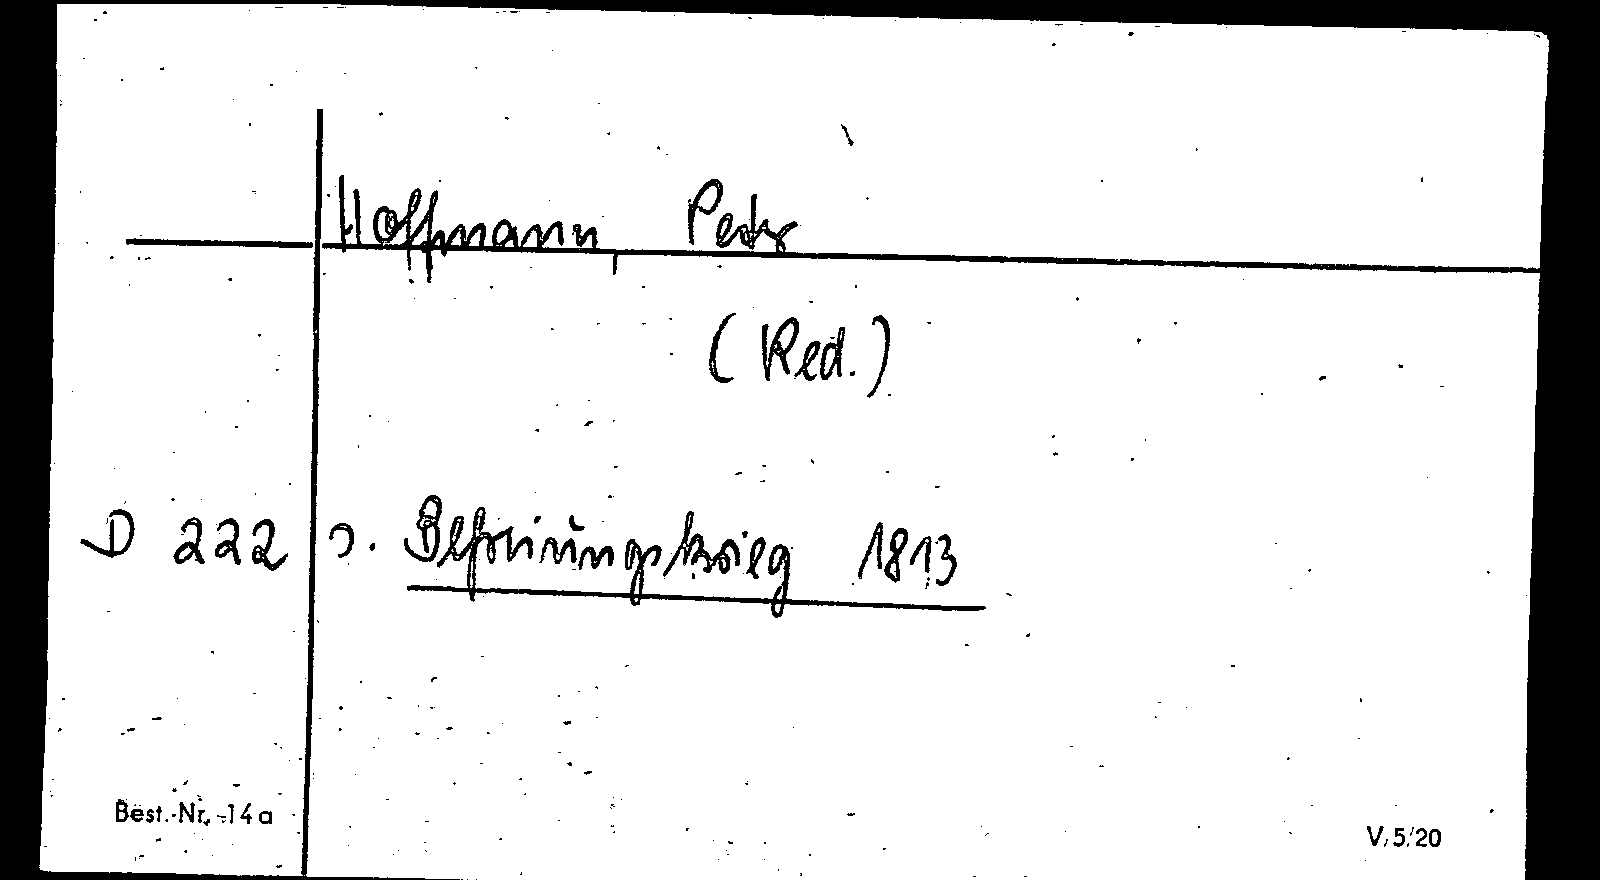 Hoffmann, Peter
(Red.)
D 222 s. Befreiungskrieg 1813
Best.-Nr. 14a
V/5/20